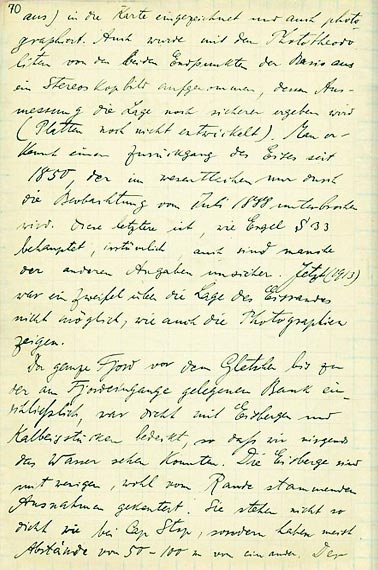 70
aus) in die Karte eingezeichnet und auch photo-
graphiert. Auch wurde mit dem Phototheodo-
liten von den beiden Endpunkten der Basis aus
ein Stereoskopbild aufgenommen, dessen Aus-
messung die Lage noch sicherer ergeben wird
(Platten noch nicht entwickelt). Man er-
kennt einen Zurückgang des Eises seit
1850, der im wesentlichen nur durch
die Beobachtung vom Juli 1899 unterbrochen
wird. Diese letztere ist, wie Engel § 33
behauptet, irrtümlich auch sind manche
der anderen Angaben unsicher. Jetzt (1913)
war ein Zweifel über die Lage des Eisrandes
nicht möglich, wie auch die Photographien
zeigen.
Der ganze Fjord vor dem Gletscher bis zu
der am Fjordeingange gelegenen Bank ein-
schließlich, war dicht mit Eisbergen und
Kalbeisstücken bedeckt, so daß wir nirgends
das Wasser sehen konnten. Die Eisberge sind
mit wenigen, wohl vom Rande stammenden
Ausnahmen gekentert. Sie stehen nicht so
dicht wie bei Cap Stop, sondern haben meist
Abstände von 50-100 m von einander. Der